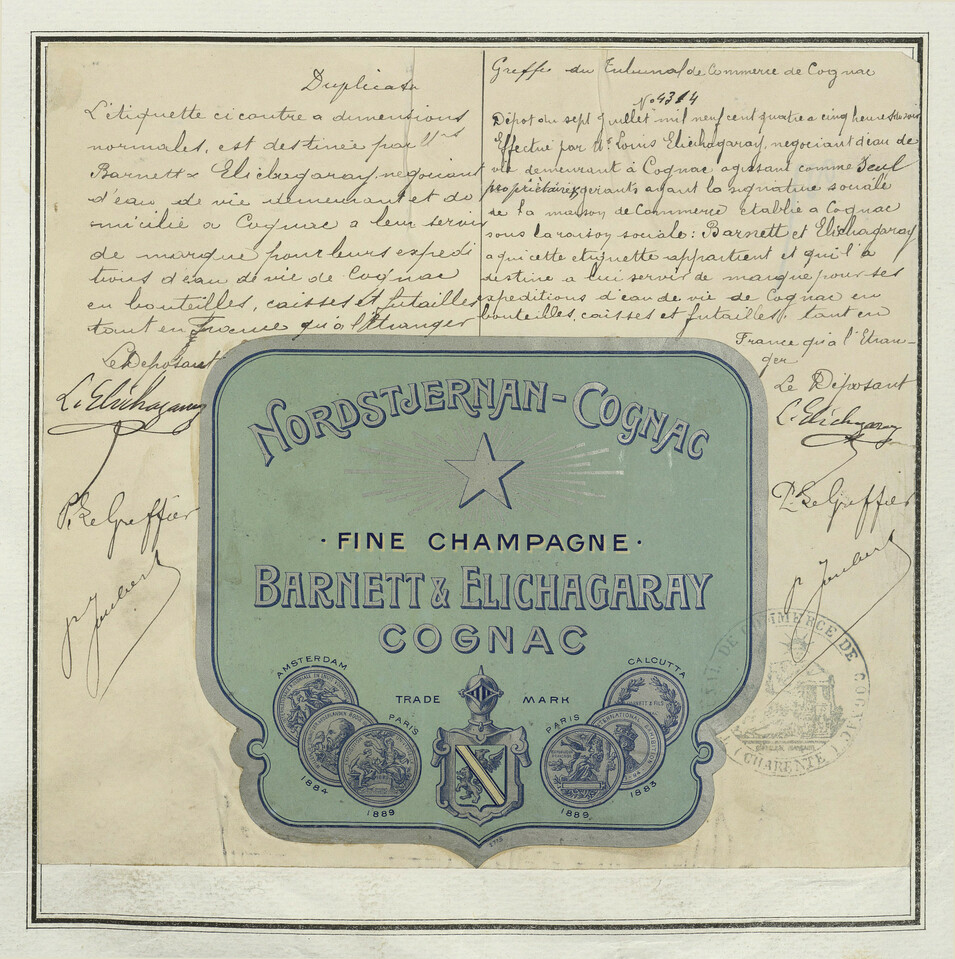 Duplicata
L'étiquette ci contre a dimensions
normales, est destinée par Mrs
Barnett & Elichagaray, negociant
d'eau de vie demeurant et do
micilié a Cognac a leur servir
de marque pour leurs expedi
tions d'eau de vie de Cognac
en bouteilles, caisses et futailles
tant en France qu'à l'Etranger
Le Deposant
L. Elichagaray
P. Le Greffier
p Joubert
Greffe du Tribunal de Commerce de Cognac
No 4314
Dépot du sept Juillet mil neuf cent quatre a cinq heures du soir
Effectué par Mr Louis Elichagaray, negociant d'eau de
vie demeurant à Cognac agissant comme seul
propriétaire, gerants ayant la signature sociale
de la maison de Commerce etablie a Cognac
sous la raison sociale: Barnett et Elichagaray
a qui cette etiquette appartient et qu'il a
destine a lui servir de marque pour ses
expeditions d'eau de vie de Cognac en
bouteilles, caisses et futailles, tant en
France qu'a l'Etran-
ger
Le Déposant
L. Elichagaray
P. Le Greffier
p Joubert
NORDSTJERNAN-COGNAC
· FINE CHAMPAGNE ·
BARNETT & ELICHAGARAY
COGNAC
TRADE MARK
AMSTERDAM
PARIS
1884
1889
PARIS
CALCUTTA
1889,
1883
DE COMMERCE DE COGNAC
(CHARENTE)